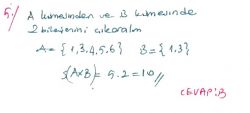 5-) A kümesinden ve B kümesinde
2 bileşenini çıkaralım
A = {1,3,4,5,6} B = {1,3}
s(AxB) = 5.2 = 10 //
CEVAP: B